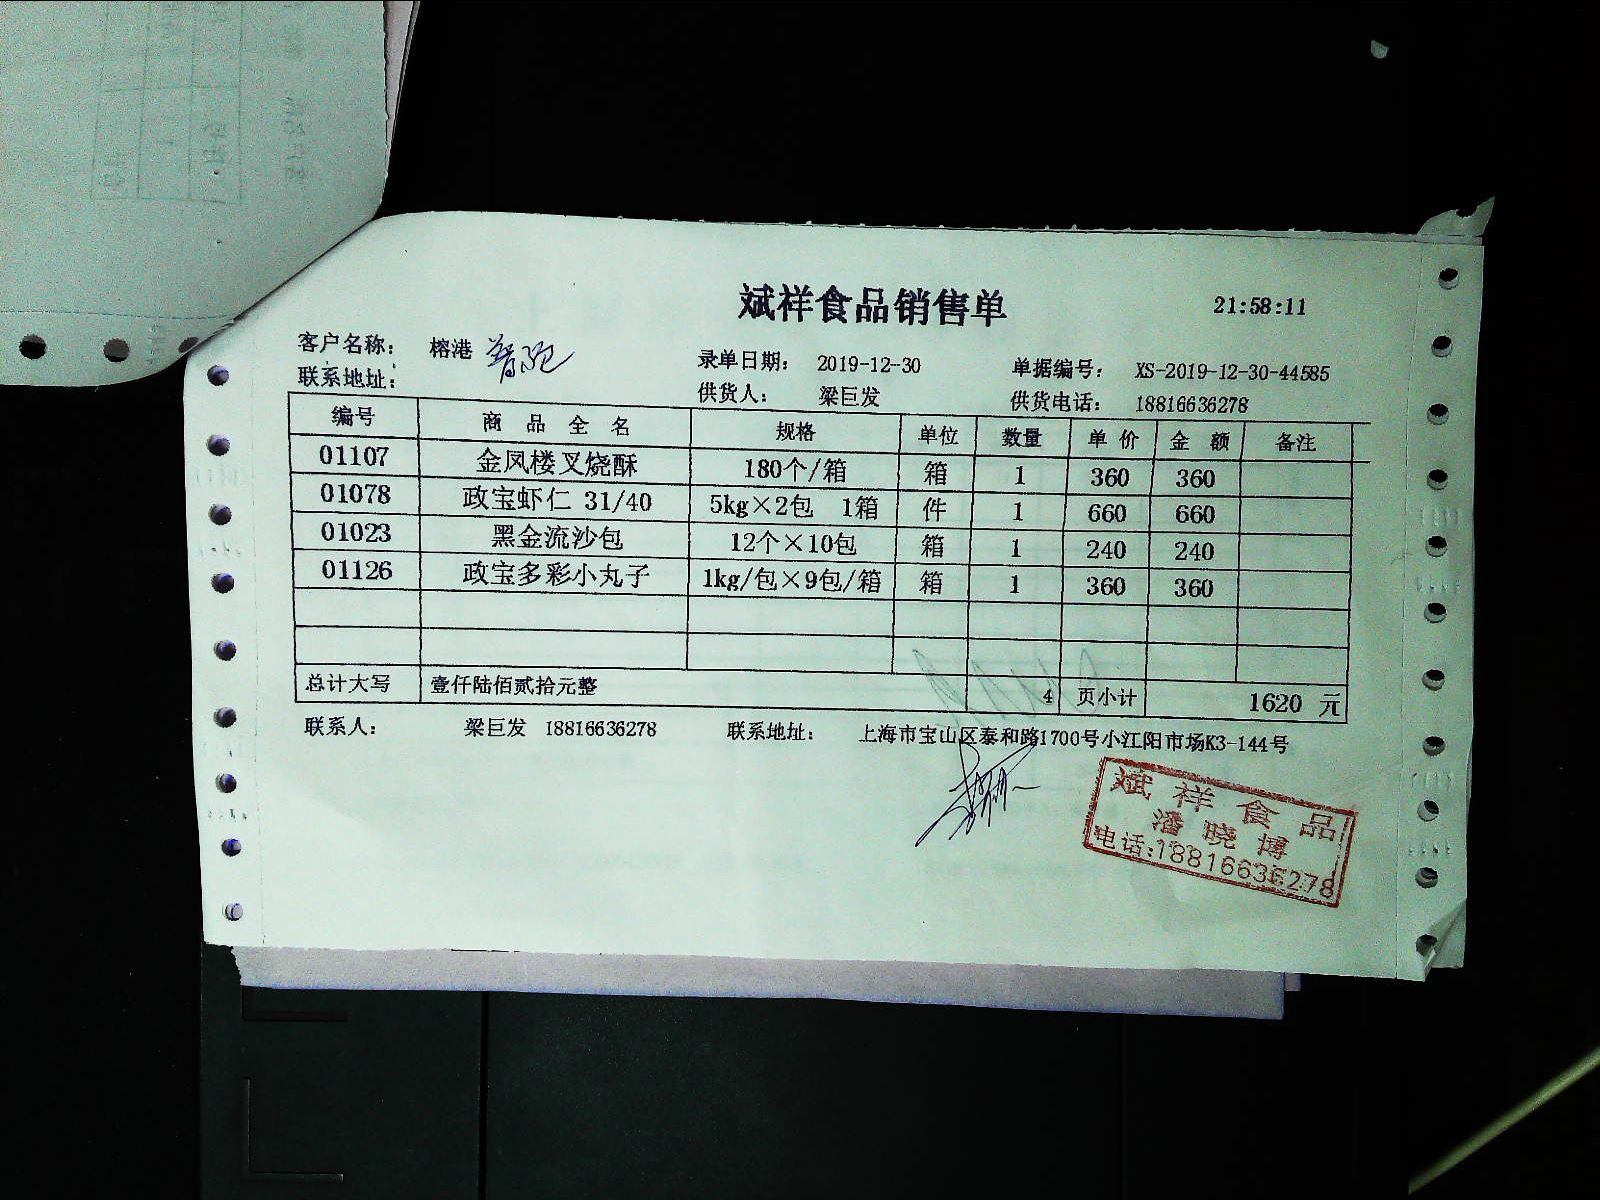 斌祥食品销售单 21:58:11
客户名称： 榕港 录单日期： 2019-12-30 单据编号： XS-2019-12-30-44585
联系地址： 供货人： 梁巨发 供货电话： 18816636278
编号 商品全名 规格 单位 数量 单价 金额 备注
01107 金凤楼叉烧酥 180个/箱 箱 1 360 360
01078 政宝虾仁 31/40 5kg×2包 1箱 件 1 660 660
01023 黑金流沙包 12个×10包 箱 1 240 240
01126 政宝多彩小丸子 1kg/包×9包/箱 箱 1 360 360
总计大写 壹仟陆佰贰拾元整 4 页小计 1620 元
联系人： 梁巨发 18816636278 联系地址： 上海市宝山区泰和路1700号小江阳市场K3-144号
斌祥食品
潘晓博
电话:18816636278